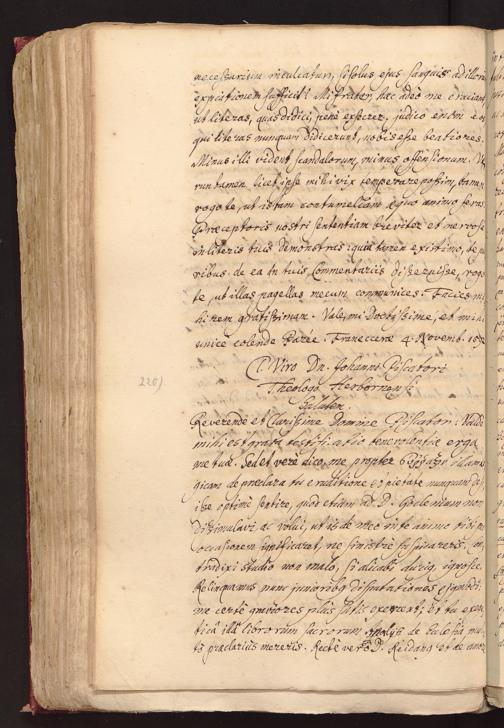 necessarium inculcatur, si solus ejus sanguis ad illorum
expiationem sufficit! Mi frater, hæc adeò me cruciant
ut literas, quas didici, penè execrer. judico enim eos
qui literas nunquam didicerunt, nobis esse beatiores.
Minus illi vident scandalorum, minus offensionum. Ve
runtamen licet ipse mihi vix temperare possim, tamen
rogo te, ut istam contumeliam æquo animo feras
Præceptoris nostri sententiam breviter et nervose
in literis tuis demonstras: quia tamen existimo, te
ribus de ea in tuis Commentariis disseruisse, rogo
te, ut illas pagellas mecum communices. Facies mi
hi rem gratissimam. Vale, mi Doctissime, et mihi
unice colende Frater. Franeceræ 4. Novemb.
Cl. Viro Dn. Johanni Piscatori
Theologo Herbornensi
Salutem.
220)
Reverende et Clarissime Domine Piscator. Valde
mihi est grata testificatio benevolentiæ erga
me tuæ. Sed et verè dico, me propter
de præclara tua eruditione et pietate nunquam
optimè sentire, quod etiam ad D. Goclenium non
dissimulavi ac volui, ut is de meo isto animo tibi
occasionem significaret, ne sinistrè suspicareris.
tradixi studio non malo, si alicubi ignosce.
Relinquamus nunc junioribus disputationes ejusmodi:
me certè graviores satis exercent. Et tu
illâ librorum sacrorum Analysi de Ecclesia
præclarius mereris. Rectè verò D. et de